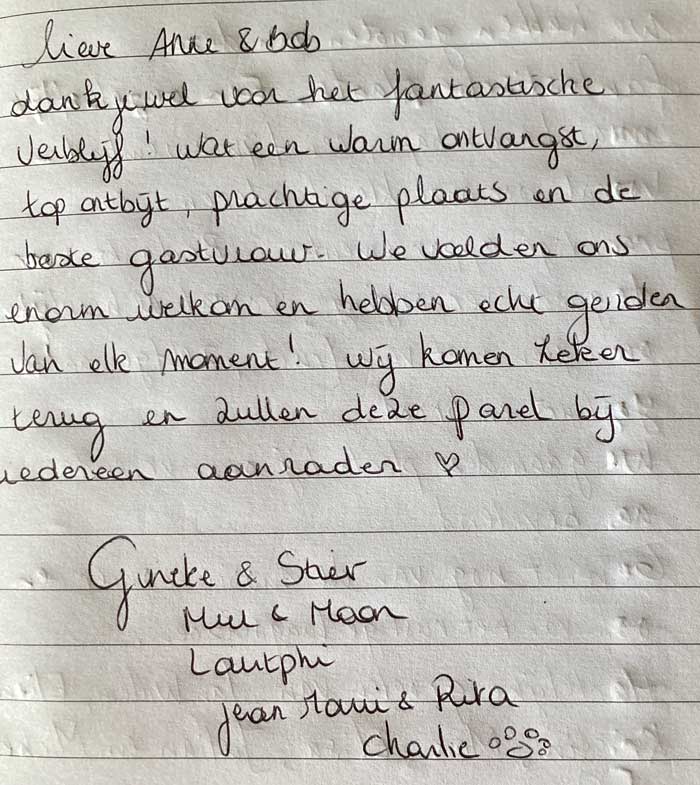 lieve Anne & bob
dankjewel voor het fantastische
verblijf! wat een warm ontvangst,
top ontbijt, prachtige plaats en de
beste gastvrouw. We voelden ons
enorm welkom en hebben echt genoten
van elk moment! wij komen zeker
terug en zullen deze parel bij
iedereen aanraden ♡
& Stier
& Moon
Jean & Rita
Charlie